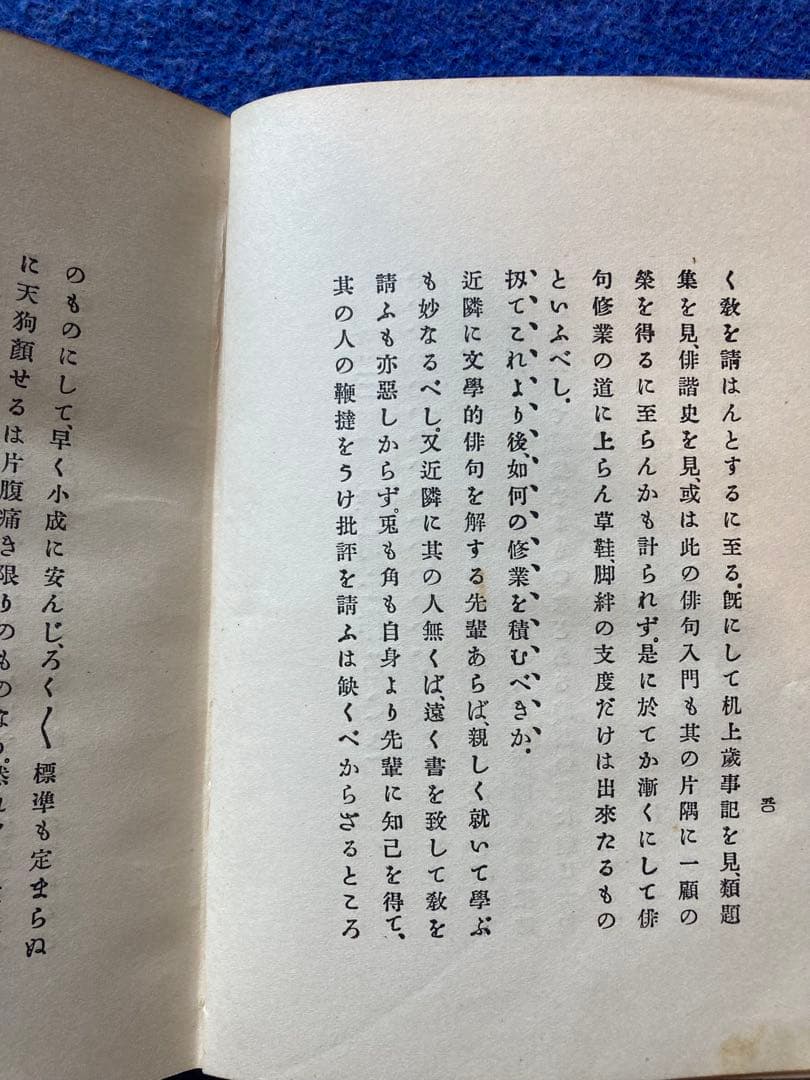 く敎を請はんとするに至る。旣にして机上歲事記を見、類題
集を見、俳諧史を見、或は此の俳句入門も其の片隅に一顧の
榮を得るに至らんかも計られず。是に於てか漸くにして俳
句修業の道に上らん草鞋脚絆の支度だけは出來たるもの
といふべし。
扨てこれより後、如何の修業を積むべきか。
近隣に文學的俳句を解する先輩あらば、親しく就いて學ぶ
も妙なるべし。又近隣に其の人無くば、遠く書を致して敎を
請ふも亦惡しからず。兎も角も自身より先輩に知己を得て、
其の人の鞭撻をうけ批評を請ふは缺くべからざるところ
四〇
のものにして、早く小成に安んじ、ろく〱標準も定まらぬ
に天狗顏せるは片腹痛き限りのものなり。然れ